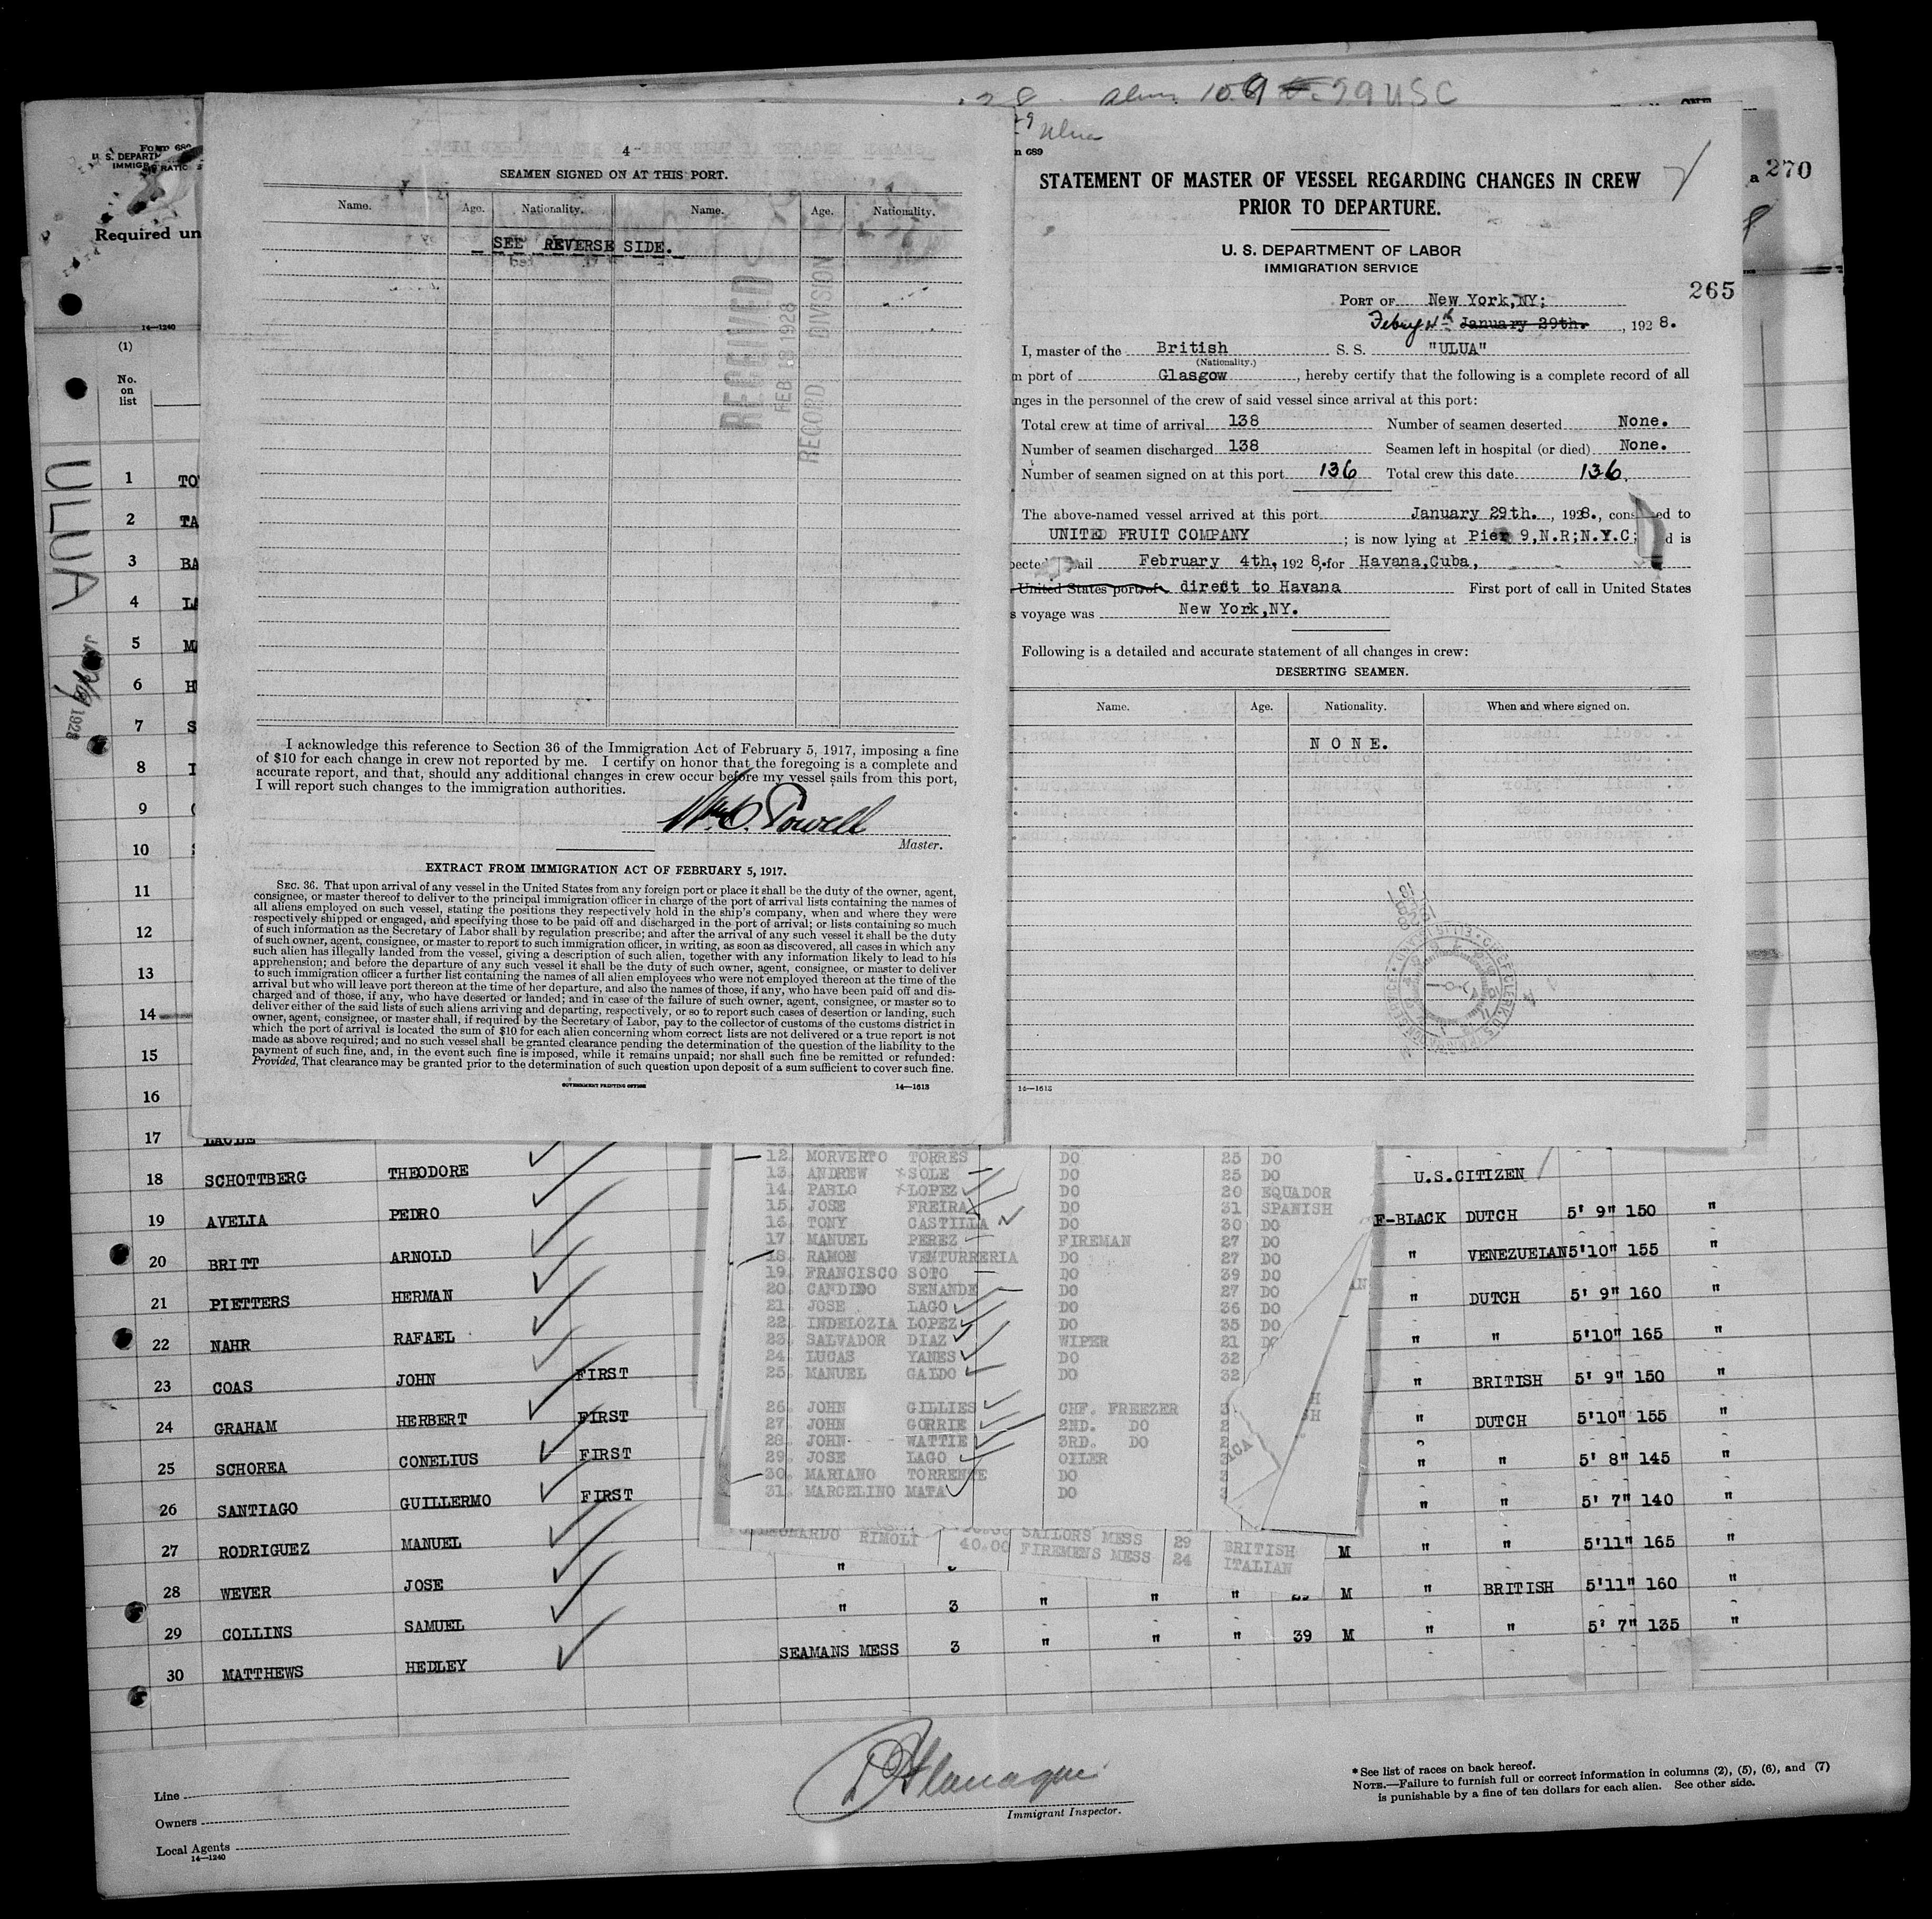 28 Alien 109 29 USC
Form 689
U. S. DEPART
IMMIGRATION
Required un
14—1240
(1)
No.
on
list
ULUA
1928
1
2 TA
3 BA
4
5
6
7 S
8
9
10
11
12
13
14
15
16
17
4
SEAMEN SIGNED ON AT THIS PORT.
Name. Age. Nationality. Name. Age. Nationality.
SEE REVERSE SIDE.
RECEIVED
FEB 1928
RECORD DIVISION
I acknowledge this reference to Section 36 of the Immigration Act of February 5, 1917, imposing a fine
of $10 for each change in crew not reported by me. I certify on honor that the foregoing is a complete and
accurate report, and that, should any additional changes in crew occur before my vessel sails from this port,
I will report such changes to the immigration authorities.
Wm. C. Powell
Master.
EXTRACT FROM IMMIGRATION ACT OF FEBRUARY 5, 1917.
SEC. 36. That upon arrival of any vessel in the United States from any foreign port or place it shall be the duty of the owner, agent,
consignee, or master thereof to deliver to the principal immigration officer in charge of the port of arrival lists containing the names of
all aliens employed on such vessel, stating the positions they respectively hold in the ship's company, when and where they were
respectively shipped or engaged, and specifying those to be paid off and discharged in the port of arrival; or lists containing so much
of such information as the Secretary of Labor shall by regulation prescribe; and after the arrival of any such vessel it shall be the duty
of such owner, agent, consignee, or master to report to such immigration officer, in writing, as soon as discovered, all cases in which any
such alien has illegally landed from the vessel, giving a description of such alien, together with any information likely to lead to his
apprehension; and before the departure of any such vessel it shall be the duty of such owner, agent, consignee, or master to deliver
to such immigration officer a further list containing the names of all alien employees who were not employed thereon at the time of the
arrival but who will leave port thereon at the time of her departure, and also the names of those, if any, who have been paid off and dis-
charged and of those, if any, who have deserted or landed; and in case of the failure of such owner, agent, consignee, or master so to
deliver either of the said lists of such aliens arriving and departing, respectively, or so to report such cases of desertion or landing, such
owner, agent, consignee, or master shall, if required by the Secretary of Labor, pay to the collector of customs of the customs district in
which the port of arrival is located the sum of $10 for each alien concerning whom correct lists are not delivered or a true report is not
made as above required; and no such vessel shall be granted clearance pending the determination of the question of the liability to the
payment of such fine, and, in the event such fine is imposed, while it remains unpaid; nor shall such fine be remitted or refunded:
Provided, That clearance may be granted prior to the determination of such question upon deposit of a sum sufficient to cover such fine.
GOVERNMENT PRINTING OFFICE 14—1613
Ulua
n 689
STATEMENT OF MASTER OF VESSEL REGARDING CHANGES IN CREW
PRIOR TO DEPARTURE.
a 270
U. S. DEPARTMENT OF LABOR
IMMIGRATION SERVICE
265
PORT OF New York,NY;
Febry 4th January 29th. , 1928.
I, master of the British S. S. "ULUA"
(Nationality.)
m port of Glasgow , hereby certify that the following is a complete record of all
nges in the personnel of the crew of said vessel since arrival at this port:
Total crew at time of arrival 138 Number of seamen deserted None.
Number of seamen discharged 138 Seamen left in hospital (or died) None.
Number of seamen signed on at this port 136 Total crew this date 136.
The above-named vessel arrived at this port January 29th. , 1928., cons ed to
UNITED FRUIT COMPANY ; is now lying at Pier 9,N.R;N.Y.C; d is
pected ail February 4th, 1928, for Havana,Cuba,
United States port of direct to Havana First port of call in United States
s voyage was New York,NY.
Following is a detailed and accurate statement of all changes in crew:
DESERTING SEAMEN.
Name. Age. Nationality. When and where signed on.
N O N E.
14—1613
12. MORVERTO TORRES DO 25 DO
13. ANDREW SOLE DO 25 DO
14. PABLO LOPEZ DO 20 EQUADOR
15. JOSE FREIRA DO 31 SPANISH
16. TONY CASTILLA DO 30 DO
17. MANUEL PEREZ FIREMAN 27 DO
18. RAMON VENTURRERIA DO 27 DO
19. FRANCISCO SOTO DO 39 DO
20. CANDIDO SENANDE DO 27 DO
21. JOSE LAGO DO 36 DO
22. INDELOZIA LOPEZ DO 35 DO
23. SALVADOR DIAZ WIPER 21 DO
24. LUCAS YANES DO 32
25. MANUEL GALDO DO 32
26. JOHN GILLIES CHF. FREEZER
27. JOHN GORRIE 2ND. DO
28. JOHN WATTIE 3RD. DO
29. JOSE LAGO OILER
30. MARIANO TORRENTE DO
31. MARCELINO MATA DO
RIMOLI SAILORS MESS 29 BRITISH
40.00 FIREMENS MESS 24 ITALIAN
18 SCHOTTBERG THEODORE
19 AVELIA PEDRO
20 BRITT ARNOLD
21 PIETTERS HERMAN
22 NAHR RAFAEL
23 COAS JOHN FIRST
24 GRAHAM HERBERT FIRST
25 SCHOREA CONELIUS FIRST
26 SANTIAGO GUILLERMO FIRST
27 RODRIGUEZ MANUEL
28 WEVER JOSE
29 COLLINS SAMUEL
30 MATTHEWS HEDLEY
U.S.CITIZEN
F-BLACK DUTCH 5' 9" 150 "
" VENEZUELAN 5'10" 155 "
" DUTCH 5' 9" 160 "
" " 5'10" 165 "
" BRITISH 5' 9" 150 "
" DUTCH 5'10" 155 "
" " 5' 8" 145 "
" " 5' 7" 140 "
" M " " 5'11" 165 "
" 3 " " " M " BRITISH 5'11" 160 "
SEAMANS MESS 3 " " " 39 M " " 5' 7" 135 "
Line
Owners
Local Agents
14—1240
Immigrant Inspector.
* See list of races on back hereof.
NOTE.—Failure to furnish full or correct information in columns (2), (5), (6), and (7)
is punishable by a fine of ten dollars for each alien. See other side.